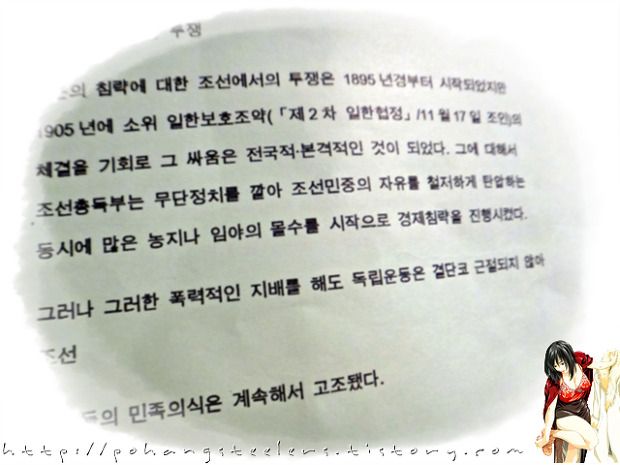 투쟁
의 침략에 대한 조선에서의 투쟁은 1895년경부터 시작되었지만
1905년에 소위 일한보호조약(「제2차 일한협정」/11월17일 조인)의
체결을 기회로 그 싸움은 전국적·본격적인 것이 되었다. 그에 대해서
조선총독부는 무단정치를 깔아 조선민중의 자유를 철저하게 탄압하는
동시에 많은 농지나 임야의 몰수를 시작으로 경제침략을 진행시켰다.
그러나 그러한 폭력적인 지배를 해도 독립운동은 결단코 근절되지 않아
조선
의 민족의식은 계속해서 고조됐다.
http://pohangsteelers.tistory.com